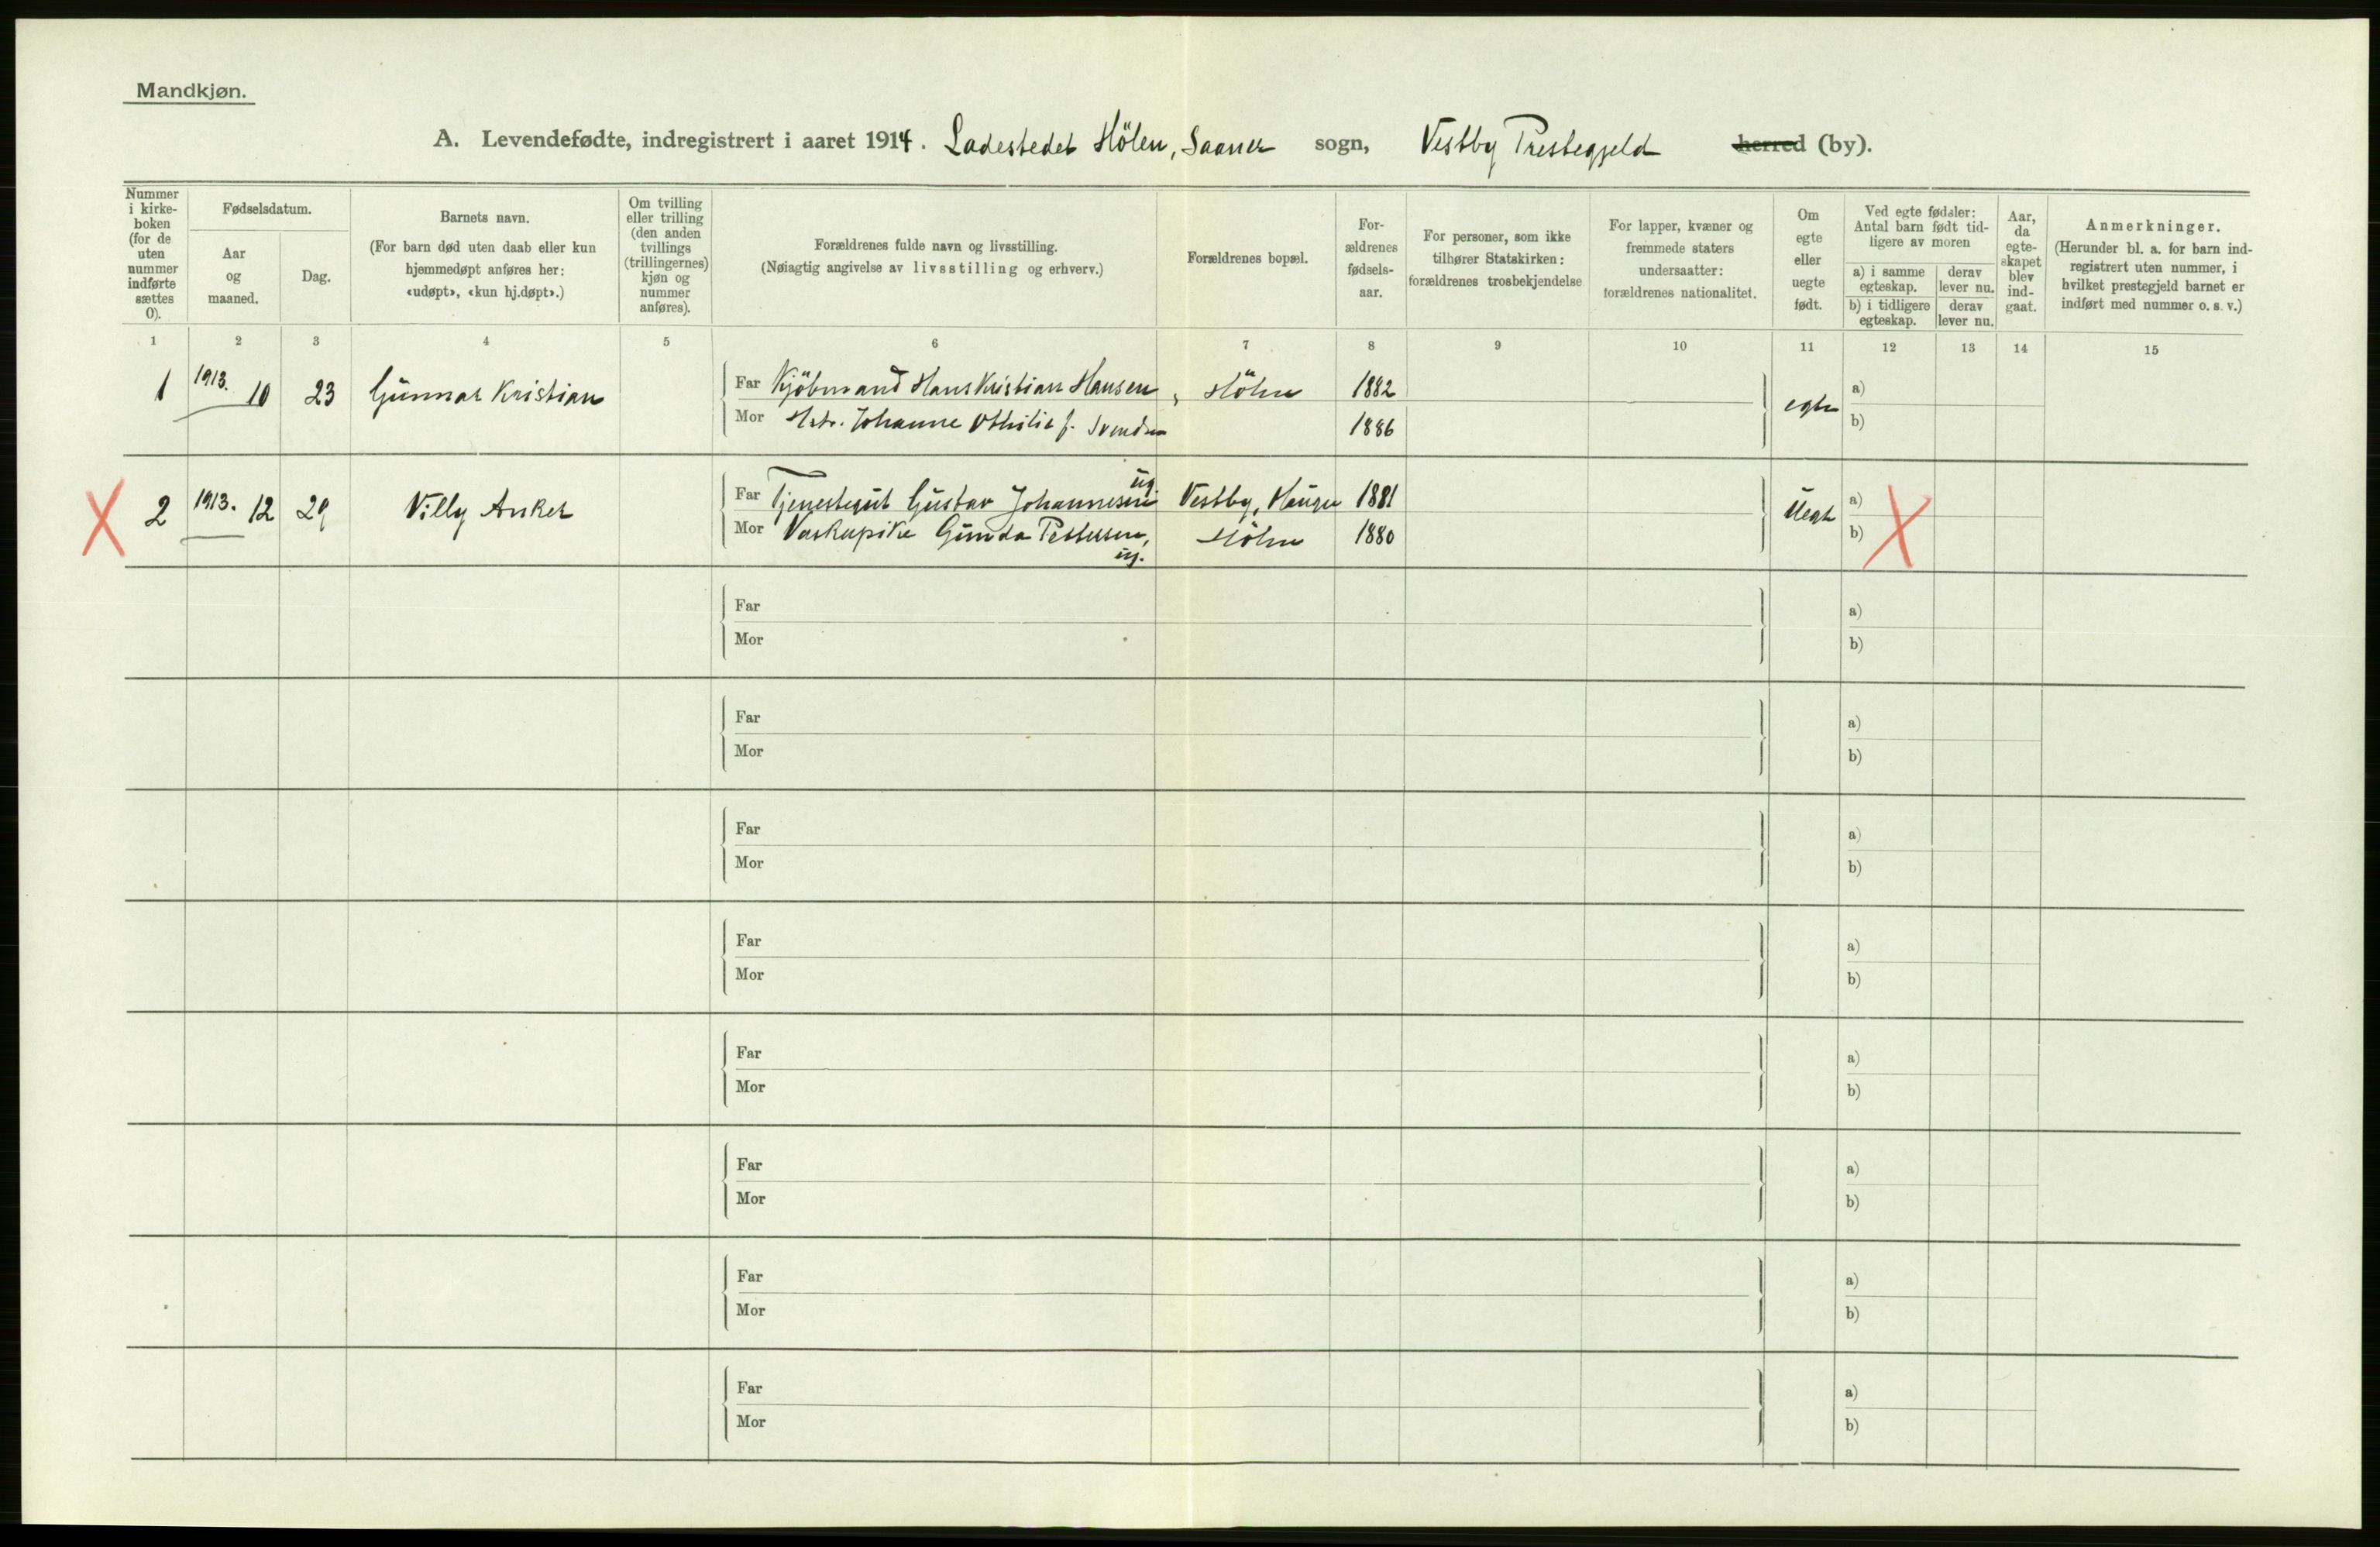 Mandkjøn.
A. Levendefødte, indregistrert i aaret 1914. Ladestedet Hölen, Saaner sogn, Vestby Prestegjeld herred (by).
Nummer i kirke-boken (for de uten nummer indførte sættes 0).
Fødselsdatum.
Aar og maaned.
Dag.
Barnets navn.
(For barn død uten daab eller kun hjemmedøpt anføres her: «udøpt», «kun hj.døpt».)
Om tvilling eller trilling (den anden tvillings (trillingernes) kjøn og nummer anføres).
Forældrenes fulde navn og livsstilling.
(Nøiagtig angivelse av livsstilling og erhverv.)
Forældrenes bopæl.
For-ældrenes fødsels-aar.
For personer, som ikke tilhører Statskirken: forældrenes trosbekjendelse
For lapper, kvæner og fremmede staters undersaatter: forældrenes nationalitet.
Om egte eller uegte født.
Ved egte fødsler: Antal barn født tid-ligere av moren
a) i samme egteskap.
derav lever nu.
b) i tidligere egteskap.
derav lever nu.
Aar, da egte-skapet blev ind-gaat.
Anmerkninger.
(Herunder bl. a. for barn ind-registrert uten nummer, i hvilket prestegjeld barnet er indført med nummer o. s. v.)
1 2 3 4 5 6 7 8 9 10 11 12 13 14 15
1 1913. 10 23 Gunnar Kristian Far Kjöbmand Hans Kristian Hansen, Hölen 1882 egte a)
Mor Hstr. Johanne Othilie f. Svendsen 1886 b)
X 2 1913. 12 29 Villy Anker Far Tjenestegut Gustav Johannesen ug. Vestby, Haugen 1881 Uegte a) X
Mor Vaskepike Gunda Pettersen, ug. Hölen 1880 b)
Far a)
Mor b)
Far a)
Mor b)
Far a)
Mor b)
Far a)
Mor b)
Far a)
Mor b)
Far a)
Mor b)
Far a)
Mor b)
Far a)
Mor b)